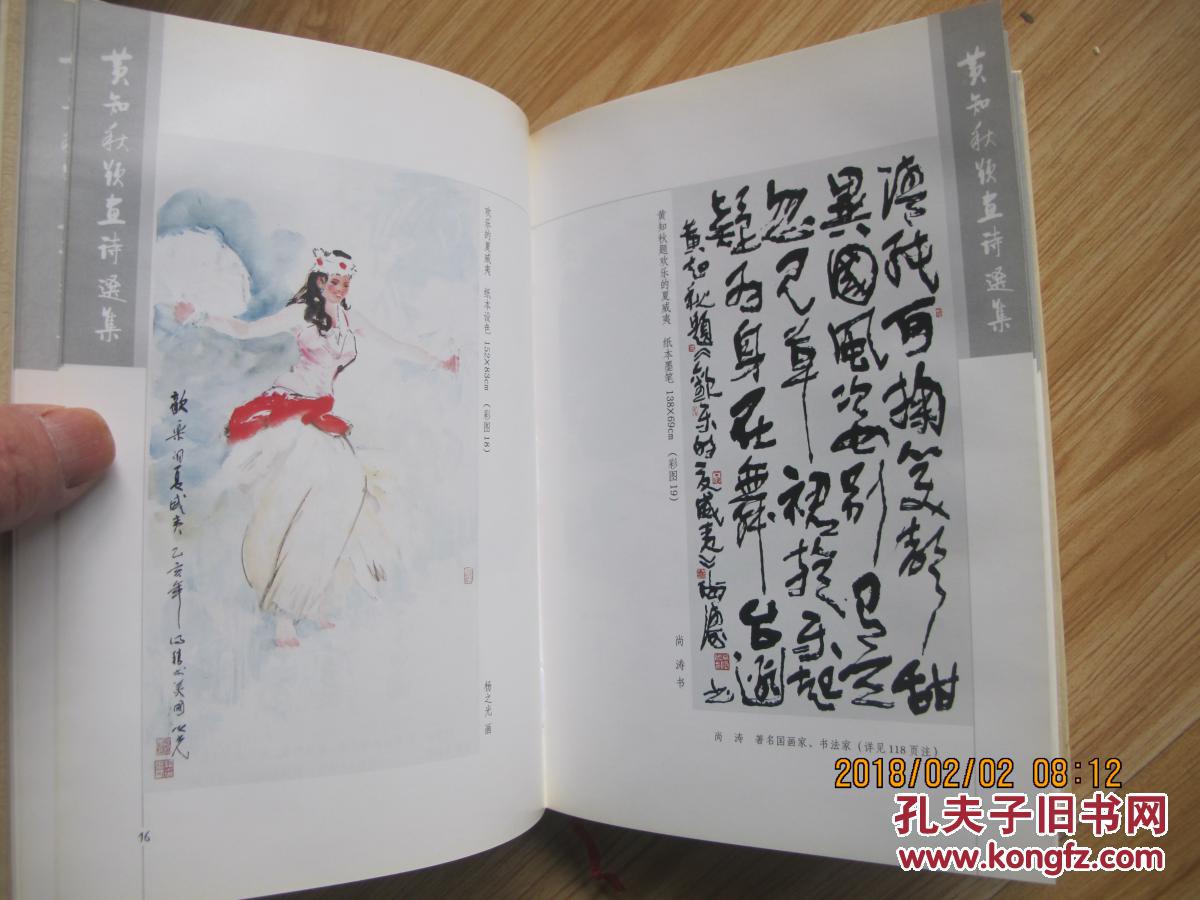 黄知秋题画诗選集
欢乐的夏威夷 纸本设色 152×83cm (彩图18)
杨之光 画
歡乐的夏威夷 乙亥年
16
黄知秋题画诗選集
黄知秋题欢乐的夏威夷 纸本墨笔 138×69cm (彩图19)
尚 涛 书
可掬笑声甜
異國風姿也别
忽见草裙
疑为身在舞台邊
黄知秋題《歡乐的夏威夷》
尚 涛 著名国画家、书法家(详见118页注)
2018/02/02 08:12
孔夫子旧书网
www.kongfz.com